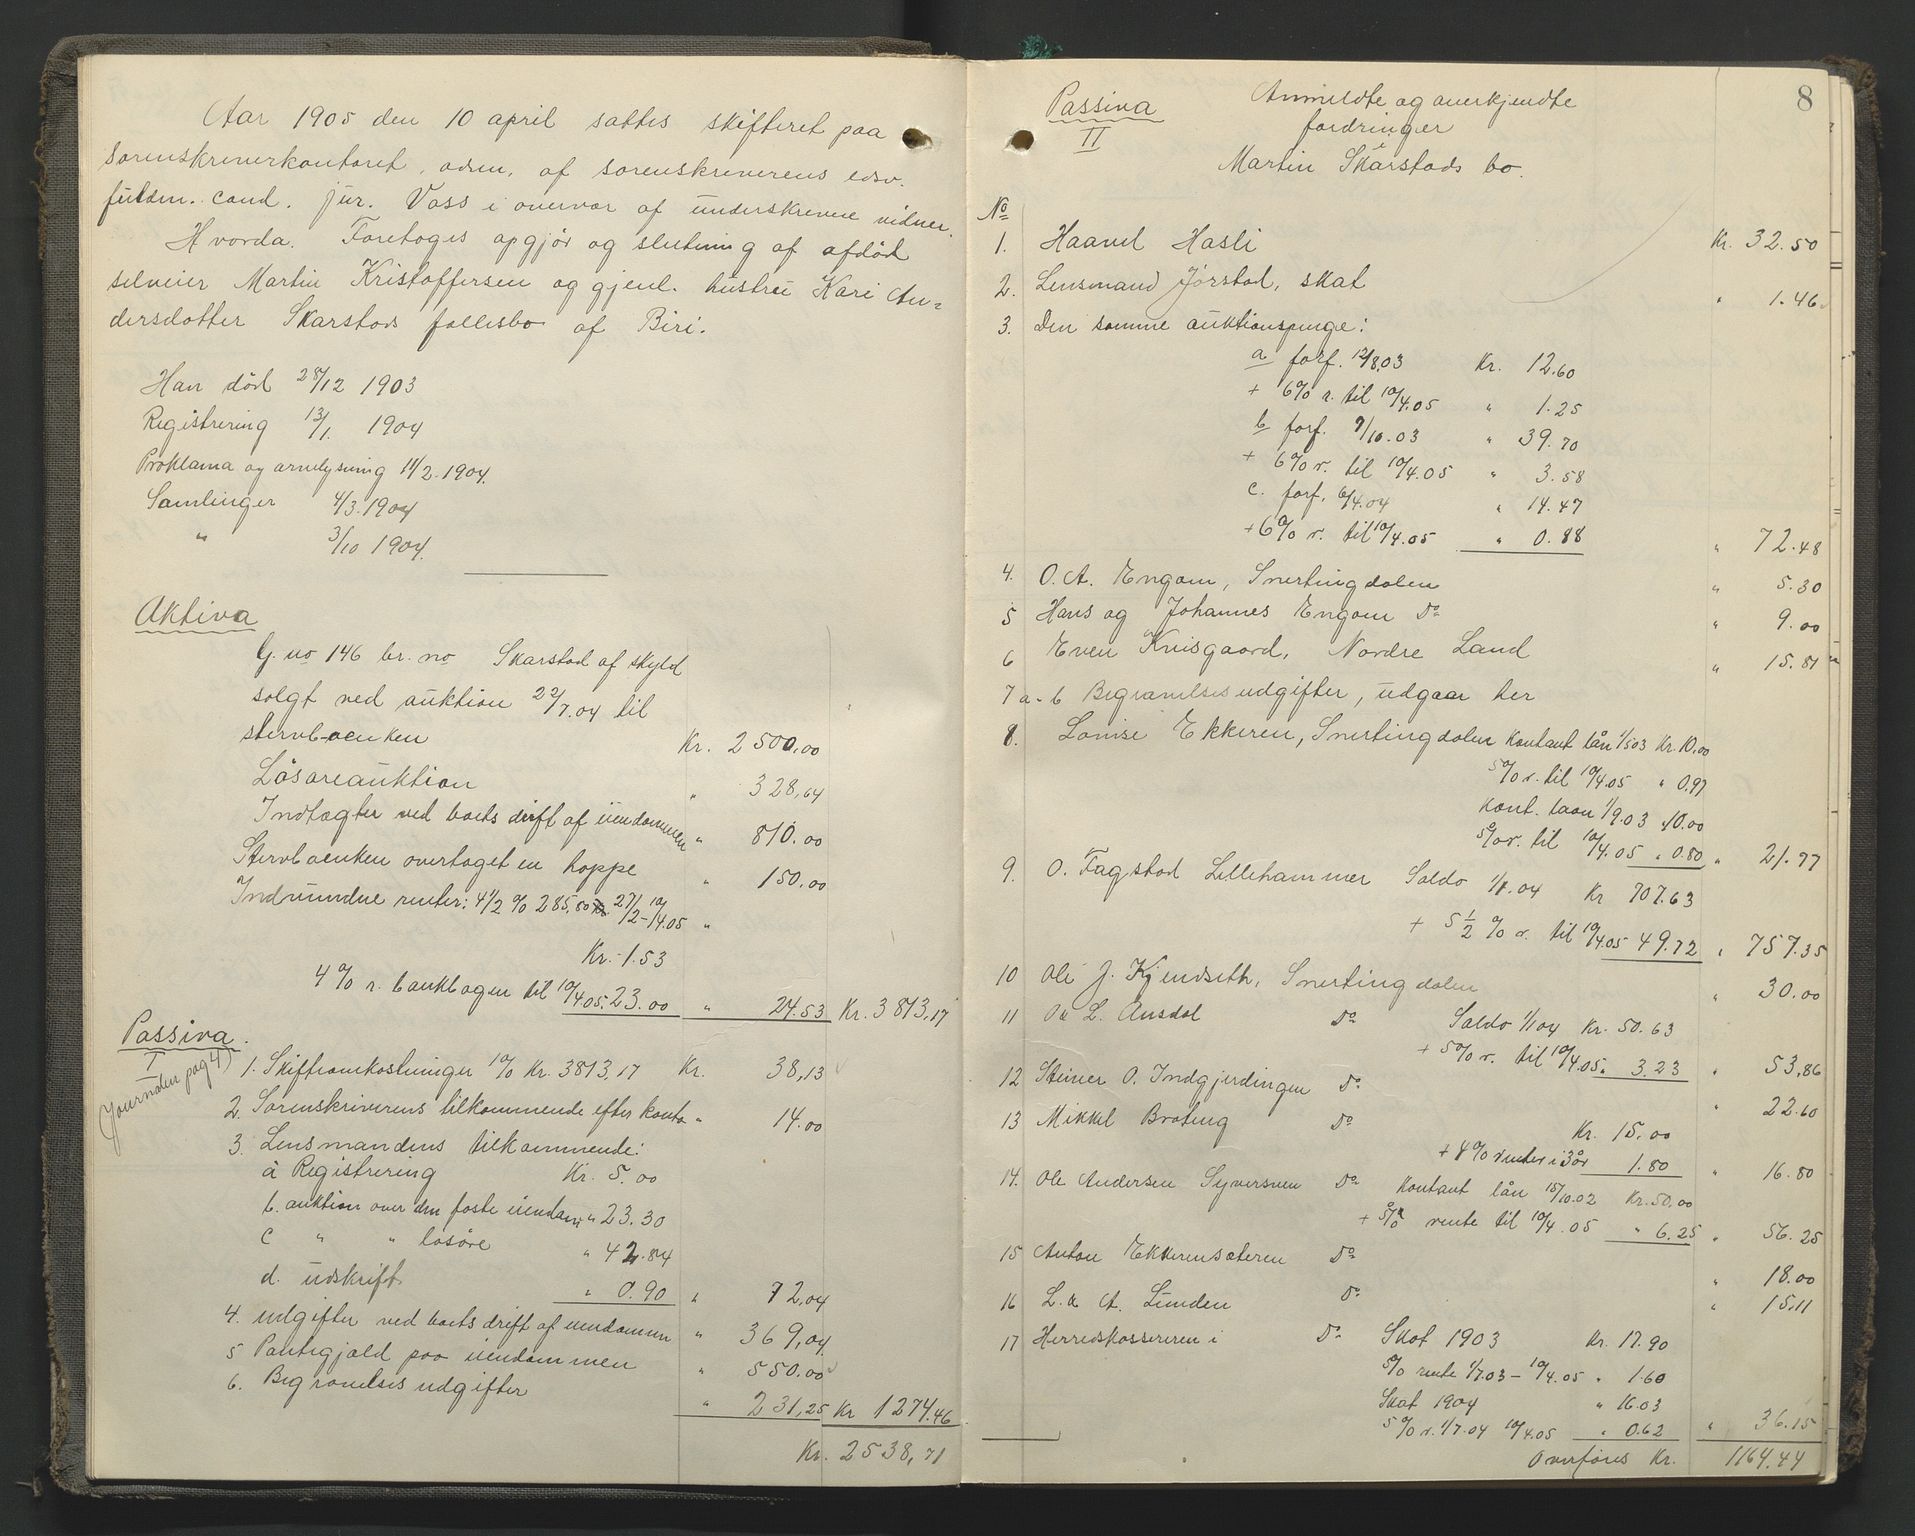 Aar 1905 den 10 april sattes skifteret paa
sorenskriverkontoret, adm. af sorenskriverens edsv.
fuldm. cand. jur. Voss i overvær af underskrevne vidner.
Hvorda. Foretoges opgjör og slutning af afdöd
selveier Martin Kristoffersen og gjenl. hustru Kari An=
dersdatter Skarstads fællesbo af Biri.
Han död 28/12 1903
Registrering 13/1. 1904
Proklama og arvelysning 11/2. 1904.
Samlinger 4/3. 1904
" 3/10 1904.
Aktiva
G. no 146 br. no Skarstad af skyld
solgt ved auktion 22/7.04 til
stervboenken Kr. 2500,00
Lösöreauktion " 328,64
Indtægter ved boets drift af eiendommen " 810.00
Stervboenken overtaget en hoppe " 150,00
Indvundne renter: 4 1/2 % 285,80 27/2-10/4.05 "
Kr. 1.53
4 % r. bankbogen til 10/4 05. 23.00 " 24.53 Kr. 3813,17
Passiva.
I
(Journalen pag 4)
1. Skifteomkostninger 1 % Kr. 3813,17 Kr. 38,13
2. Sorenskriverens tilkommende efter konto " 14.00
3. Lensmandens tilkommende:
a Registrering Kr. 5.00
b. auktion over den faste eiendom " 23.30
c " " lösöre " 42.84
d. udskrift " 0.90 " 72,04
4. udgifter ved boets drift af eiendommen " 369,04
5 Pantegjæld paa eiendommen " 550.00
6. Begravelsesudgifter " 231,25 Kr 1274.46
Kr. 2538,71
8
Passiva
II
Anmeldte og anerkjendte
fordringer
i
Martin Skarstads bo.
No
1. Haavel Hasli Kr. 32.50
2. Lensmand Jörstad, skat " 1.46
3. Den samme auktionspenge:
a forf. 12/8.03 Kr. 12.60
+ 6% r. til 10/4.05 " 1.25
b forf. 9/10.03 " 39.70
+ 6% r. til 10/4.05 " 3.58
c. forf. 6/4.04 " 14.47
+ 6% r. til 10/4.05 " 0.88 " 72.48
4. O. A. Engom, Snertingdalen " 5.30
5 Hans og Johannes Engom Do " 9.00
6 Even Knisgaard, Nordre Land " 15.81
7 a-b Begravelsesudgifter, udgaar her
8. Lovise Ekkeren, Snertingdalen Kontant lån 1/5 03 Kr. 10,00
5 % r. til 10/4.05 " 0.97
Kont. laan 1/9.03 10.00
5 % r. til 10/4.05 " 0.80 " 21.77
9. O. Fagstad Lillehammer Saldo 1/1.04 Kr 707.63
+ 5 1/2 % r. til 10/4.05 49.72 " 757.35
10 Ole J. Kjendseth, Snertingdalen " 30.00
11 Ole L. Ansdal Do Saldo 1/1 04 Kr. 50.63
+ 5 % r. til 10/4.05 " 3.23 " 53,86
12 Steiner O. Indgjerdingen Do " 22.60
13 Mikkel Brateng Do Kr. 15.00
+ 4 % renter i 3 år 1.80 " 16.80
14. Ole Andersen Syversven Do Kontant lån 15/10.02 Kr. 50,00
+ 5 % rente til 10/4.05 " 6.25 " 56.25
15 Anton Ekkerensæteren Do " 18.00
16 L. & A. Lunden Do " 15,11
17 Herredskassereren i Do Skat 1903 Kr. 17.90
5 % rente 1/7.03 - 10/4.05 " 1.60
Skat 1904 " 16.03
5 % r. 1/7.04 10/4.05 " 0.62 " 36.15
Overföres Kr. 1164.44